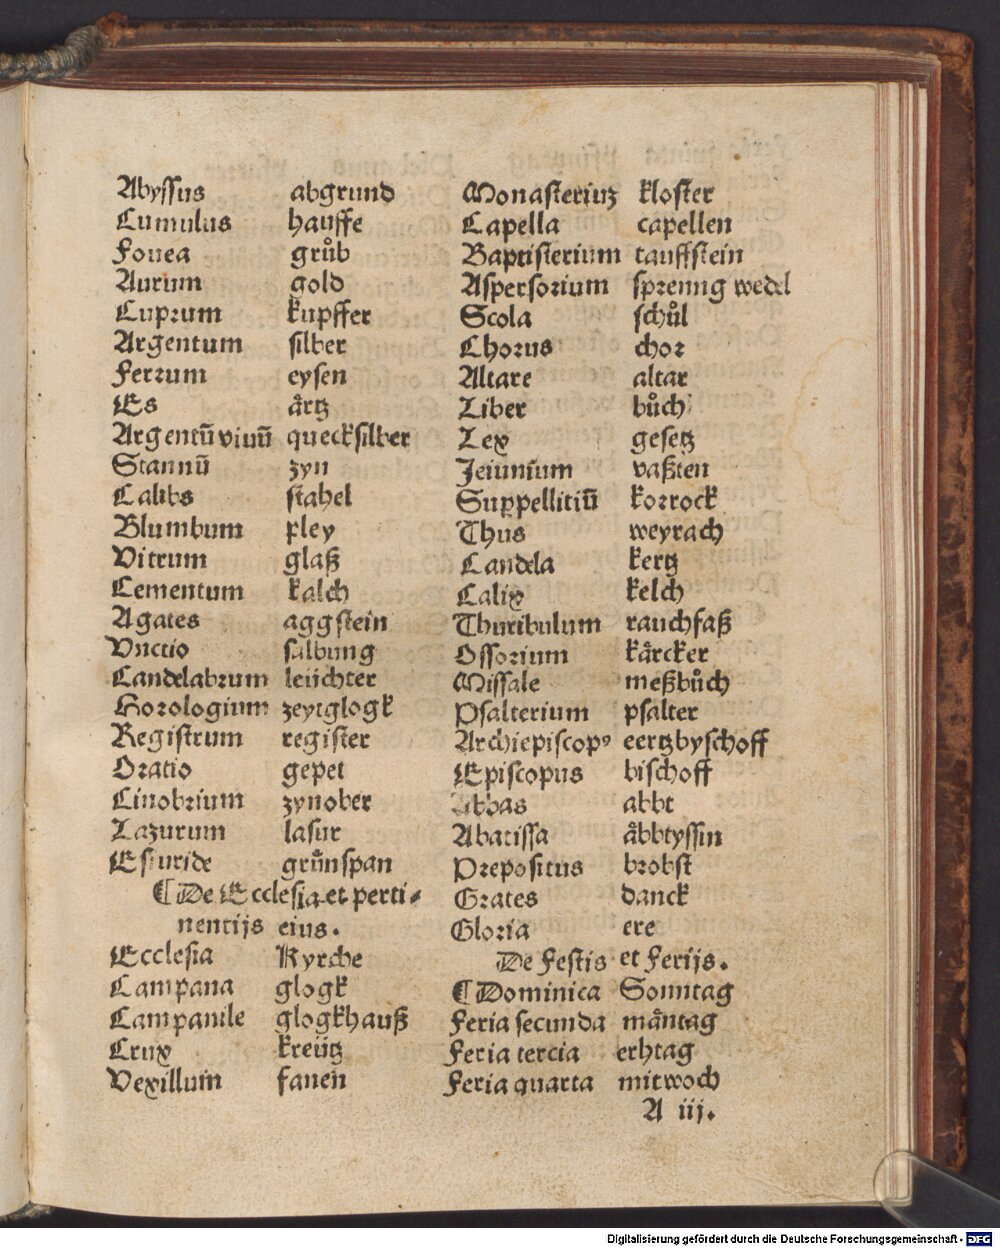 Abyssus abgrund
Cumulus hauffe
Fouea grůb
Aurum gold
Cuprum kupffer
Argentum silber
Ferrum eysen
Es årtz
Argentū viuū quecksilber
Stannū zyn
Calibs stahel
Blumbum pley
Vitrum glaß
Cementum kalch
Agates aggstein
Vnctio salbung
Candelabrum leüchter
Horologium zeytglogk
Registrum register
Oratio gepet
Cinobrium zynober
Lazurum lasur
Esuride grůnspan
¶ De Ecclesia et perti⸗
nentijs eius.
Ecclesia Kyrche
Campana glogk
Campanile glogkhauß
Crux kreütz
Vexillum fanen
Monasteriuꝫ kloster
Capella capellen
Baptisterium tauffstein
Aspersorium sprenng wedel
Scola schůl
Chorus chor
Altare altar
Liber bůch
Lex gesetz
Jeiunium vaßten
Suppellitiū korrock
Thus weyrach
Candela kertz
Calix kelch
Thuribulum rauchfaß
Ossorium kårcker
Missale meßbůch
Psalterium psalter
Archiepiscopꝰ eertzbyschoff
Episcopus bischoff
Abbas abbt
Abatissa åbbtyssin
Prepositus brobst
Grates danck
Gloria ere
De Festis et Ferijs.
¶ Dominica Sonntag
Feria secunda måntag
Feria tercia erhtag
Feria quarta mitwoch
A iij.
Digitalisierung gefördert durch die Deutsche Forschungsgemeinschaft - DFG